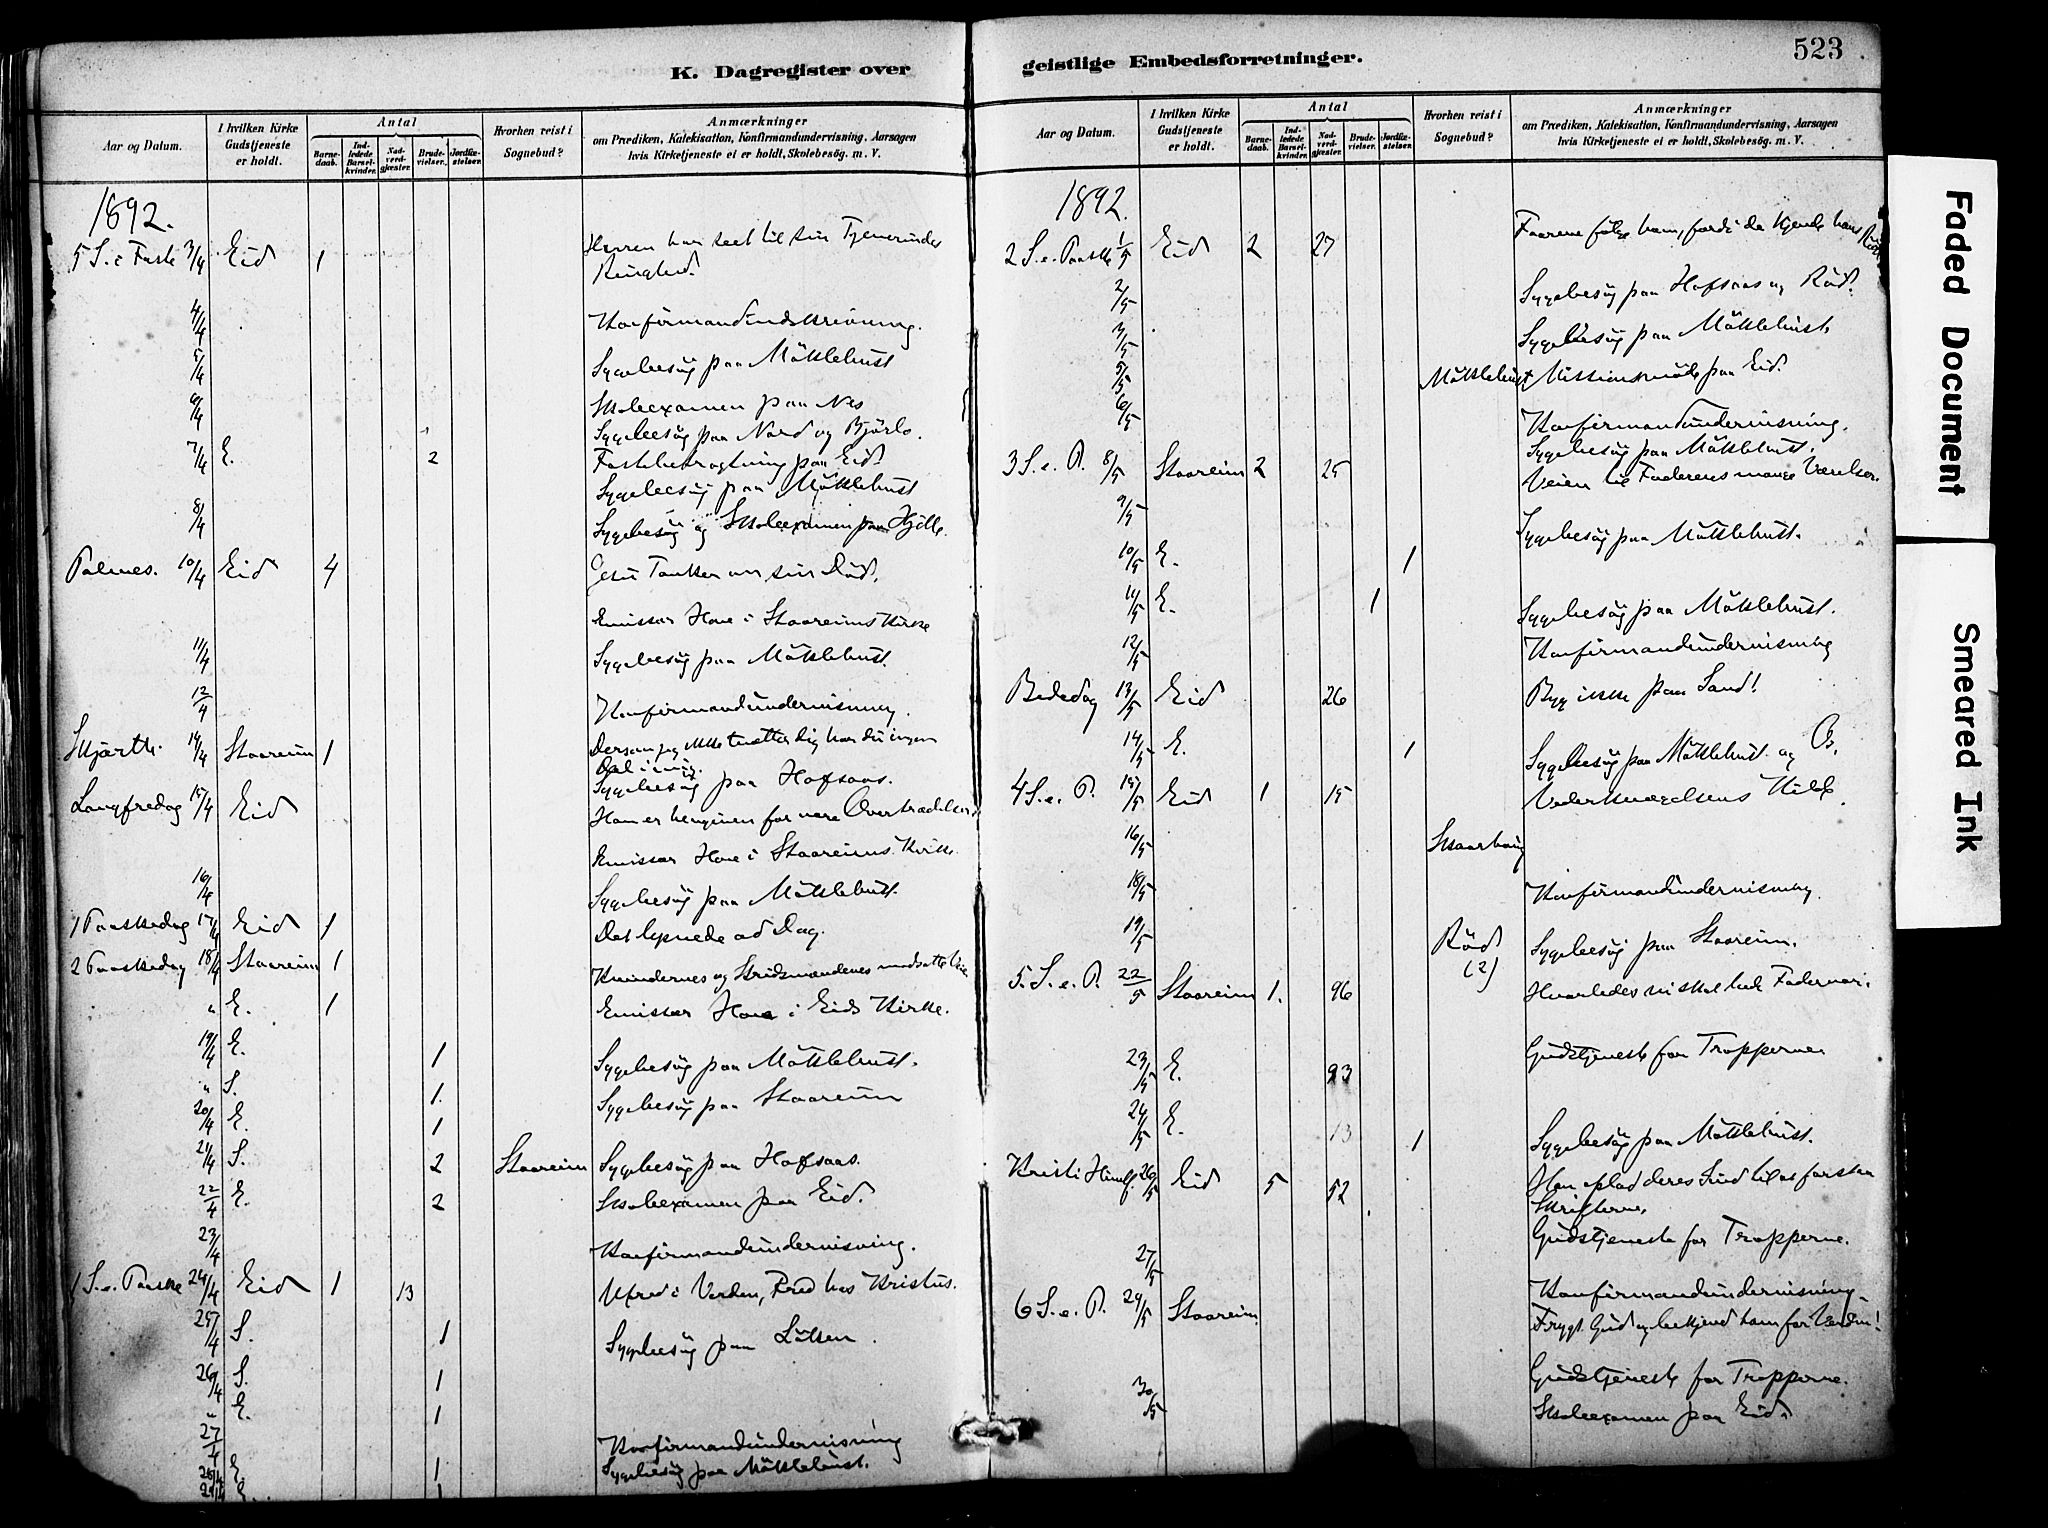 K. Dagregister over geistlige Embedsforretninger.
523
Aar og Datum.
I hvilken Kirke Gudstjeneste er holdt.
Antal
Barnedaab.
Indledede Barselkvinder.
Nadverdgjæster.
Brudevielser.
Jordfæstelser.
Hvorhen reist i Sognebud?
Anmærkninger
om Prædiken, Katekisation, Konfirmandundervisning, Aarsagen
hvis Kirketjeneste ei er holdt, Skolebesög. m. V.
1892.
5 S. i Faste 3/4 Eid 1 Herren har seet til sin Tjenerindes
Ringhed.
4/4 Konfirmandindskrivning.
5/4 Sygebesög paa Möklebust
6/4 Skoleexamen paa Nes
Sygebesög paa Nord og Bjørlo.
7/4 E. 2 Fastebetragtning paa Eid.
Sygebesög paa Möklebust
8/4 Sygebesög og Skoleexamen paa Hjelle.
Palmes. 10/4 Eid 4 Jesu Tanker om sin Död.
Emissær Hove i Staareims Kirke
11/4 Sygebesög paa Möklebust.
12/4 Konfirmandundervisning.
Skjærth. 14/4 Staareim 1 Dersom jeg ikke tvætter dig har du ingen
Del i mig.
Sygebesög paa Hofsaas.
Langfredag 15/4 Eid Han er hengiven for vore Overtrædelser
Emissær Hove i Staareims Kirke.
16/4 Sygebesög paa Möklebust.
1 Paaskedag 17/4 Eid 1 Det lysnede ad Dag.
2 Paaskedag 18/4 Staareim 1 Kvindernes og Stridsmændenes modsatte Veie
" E. 1 Emissær Hove i Eids Kirke.
19/4 E. 1 Sygebesög paa Möklebust.
" S. 1. Sygebesög paa Staareim
20/4 E. 1
21/4 S. 2 Staareim Sygebesög paa Hofsaas.
22/4 E. 2 Skoleexamen paa Eid.
23/4 Konfirmandundervisning.
1 S. e. Paaske 24/4 Eid 1 13 Ufred i Verden, Fred hos Kristus.
25/4 S. 1 Sygebesög paa Lötsen.
26/4 S. 1
" E. 1
27/4 Konfirmandundervisning
28/4 E. 1 Sygebesög paa Möklebust.
29/4 E. 1
Aar og Datum.
I hvilken Kirke Gudstjeneste er holdt.
Antal
Barnedaab.
Indledede Barselkvinder.
Nadverdgjæster.
Brudevielser.
Jordfæstelser.
Hvorhen reist i Sognebud?
Anmærkninger
om Prædiken, Katekisation, Konfirmandundervisning, Aarsagen
hvis Kirketjeneste ei er holdt, Skolebesög. m. V.
1892.
2 S. e. Paaske 1/5 Eid 2 27 Faarene följe ham, fordi de kjende hans Röst
2/5 Sygebesög paa Hofsaas og Röd.
3/5 Sygebesög paa Möklebust.
5/5 Möklebust Missionsmöde paa Eid.
6/5 Konfirmandundervisning.
Sygebesög paa Möklebust.
3 S. e. P. 8/5 Staareim 2 25 Veien til Faderens mange Værelser.
9/5 Sygebesög paa Möklebust.
10/5 E. 1
11/5 E. 1 Sygebesög paa Möklebust.
12/5 Konfirmandundervisning
Bededag 13/5 Eid 26 Byg ikke paa Sand!
14/5 E. 1 Sygebesög paa Möklebust og Os.
4 S. e. P. 15/5 Eid 1 15 Vederkvægelsens Kilde.
16/5 Skaarhaug
18/5 Konfirmandundervisning.
19/5 Röd (2) Sygebesög paa Staareim.
5. S. e. P. 22/5 Staareim 1. 96 Hvorledes vi skal bede Fadervor.
23/5 E. 93 Gudstjeneste for Tropperne
24/5 E. 13 1 Sygebesög paa Möklebust.
Kristi Himmelf. 26/5 Eid 5 52 Han oplod deres Sind til at forstaa
Skrifterne.
Gudstjeneste for Tropperne.
27/5 Konfirmandundervisning.
6 S. e. P. 29/5 Staareim Frygt Gud og bekjend ham for Verden!
Gudstjeneste for Tropperne.
30/5 Skoleexamen paa Eid.
Faded Document
Smeared Ink